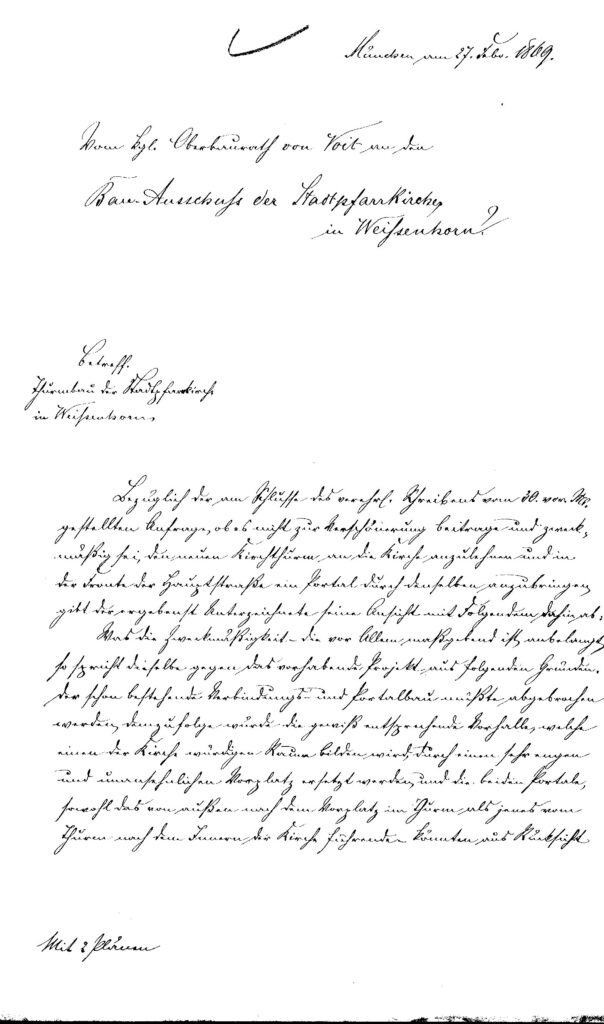 München am 27. Febr. 1869.
Vom kgl. Oberbaurath von Voit an den
Bau-Ausschuss der Stadtpfarrkirche
in Weißenhorn.
Betreff.
Thurmbau der Stadtpfarrkirche
in Weißenhorn.
Bezüglich der am Schlusse des verehrl. Schreibens vom 30. vor. Mts.
gestellten Anfrage, ob es nicht zur Verschönerung beitrage und zweck-
mäßig sei, den neuen Kirchthurm an die Kirche anzulehnen und in
der Fronte der Hauptstraße ein Portal durch denselben anzubringen,
gibt der ergebenst Unterzeichnete seine Ansicht mit Folgendem dahin ab:
Was die Zweckmäßigkeit die vor Allem maßgebend ist, anbelangt,
so spricht dieselbe gegen das vorhabende Projekt aus folgenden Gründen.
Der schon bestehende Verbindungs- und Portalbau müßte abgebrochen
werden, demzufolge würde die gewiß entsprechende Vorhalle, welche
einen der Kirche würdigen Raum bilden wird, durch einen sehr engen
und unansehnlichen Vorplatz ersetzt werden, und die beiden Portale,
sowohl das von außen nach dem Vorplatz im Thurm als jenes vom
Thurm nach dem Innern der Kirche führende könnten aus Rücksicht
Mit 2 Plänen